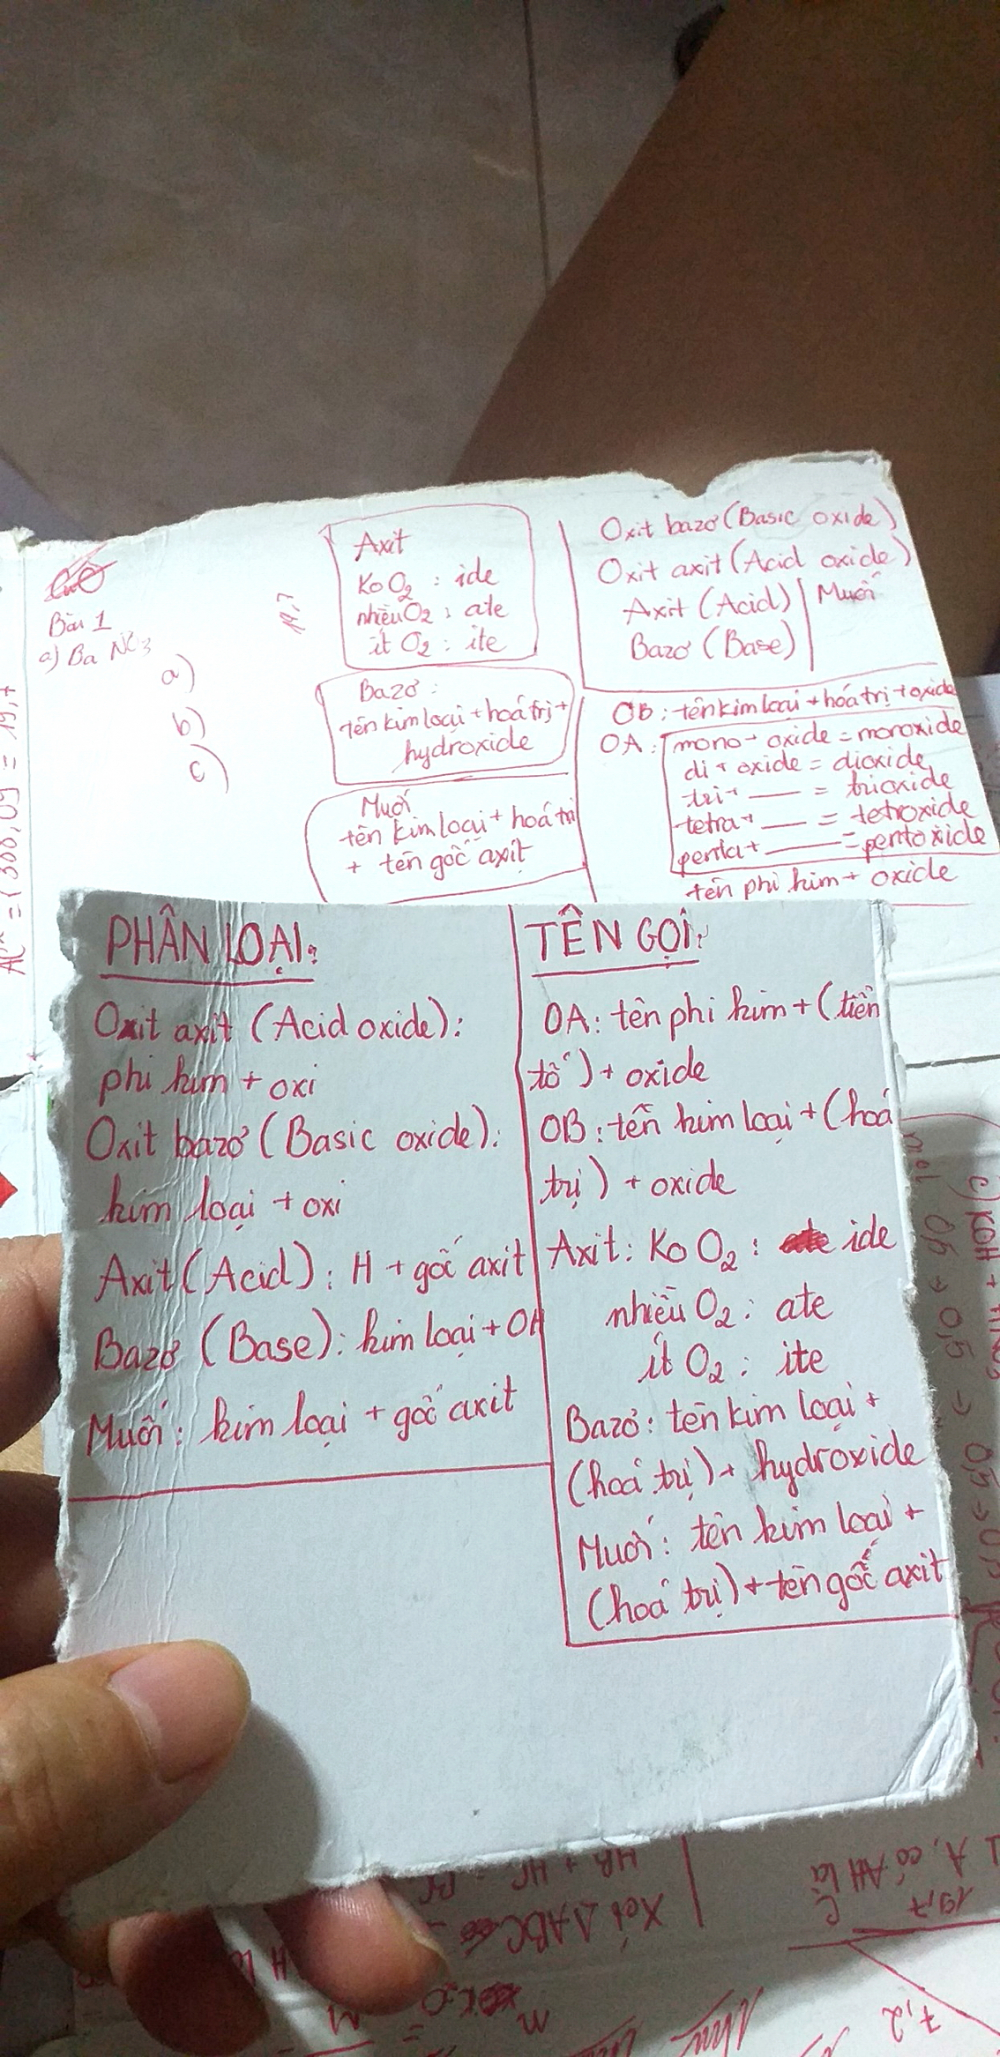 Bài 1
a) Ba NO3
a)
b)
c)
19,7
Axit
Ko O2 : ide
nhiều O2 : ate
ít O2 : ite
Bazơ :
tên kim loại + hoá trị +
hydroxide
Muối
tên kim loại + hoá trị
+ tên gốc axit
Oxit bazơ (Basic oxide)
Oxit axit (Acid oxide)
Axit (Acid) | Muối
Bazơ (Base)
OB : tên kim loại + hoá trị + oxide
OA : mono + oxide = monoxide
di + oxide = dioxide
tri + — = trioxide
tetra + — = tetroxide
penta + — = pentoxide
tên phi kim + oxide
PHÂN LOẠI:
Oxit axit (Acid oxide):
phi kim + oxi
Oxit bazơ (Basic oxide):
kim loại + oxi
Axit (Acid): H + gốc axit
Bazơ (Base): kim loại + OH
Muối: kim loại + gốc axit
TÊN GỌI:
OA: tên phi kim + (tiền
tố) + oxide
OB: tên kim loại + (hoá
trị) + oxide
Axit: Ko O2 : ide
nhiều O2 : ate
ít O2 : ite
Bazơ: tên kim loại +
(hoá trị) + hydroxide
Muối: tên kim loại +
(hoá trị) + tên gốc axit
mol 0,5 → 0,5 → 0,5
Xét ΔABC
có AH là
19,7
7,2